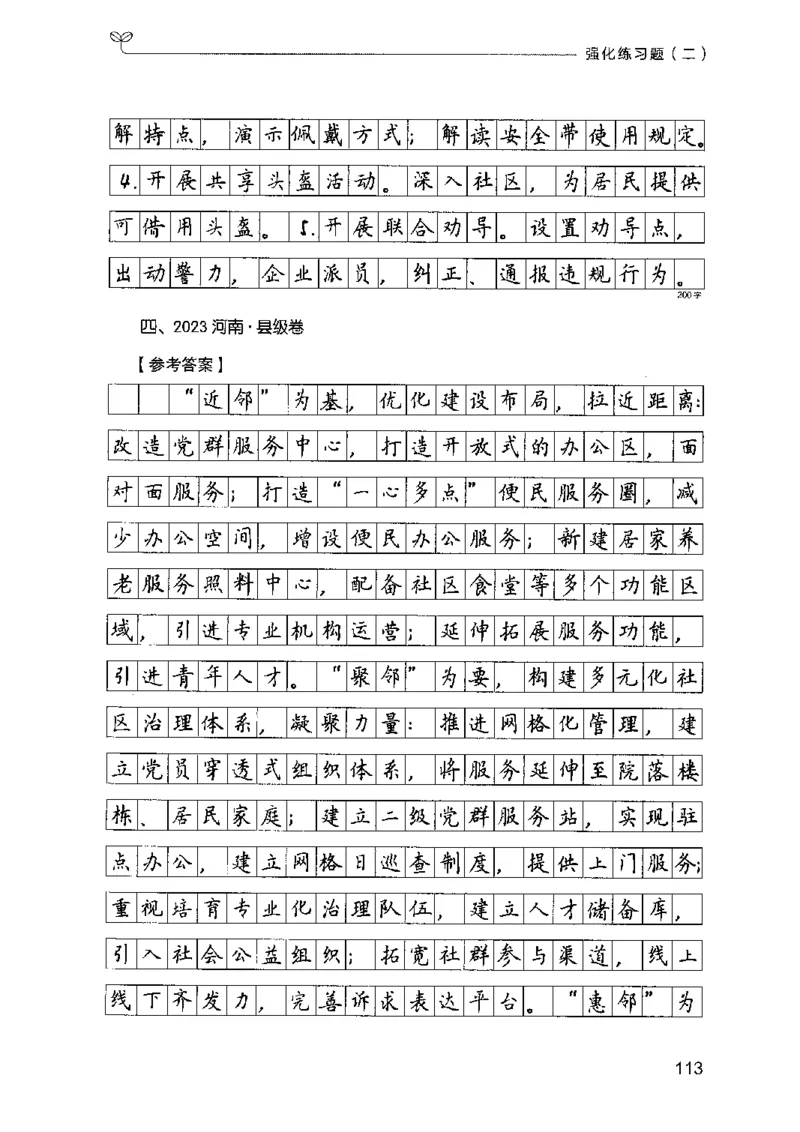 强化练习题（二）
解特点，演示佩戴方式；解读安全带使用规定。
4.开展共享头盔活动。深入社区，为居民提供
可借用头盔。5.开展联合劝导。设置劝导点，
出动警力，企业派员，纠正、通报违规行为。
200字
四、2023河南·县级卷
【参考答案】
“近邻”为基，优化建设布局，拉近距离：
改造党群服务中心，打造开放式的办公区，面
对面服务；打造“一心多点”便民服务圈，减
少办公空间，增设便民办公服务；新建居家养
老服务照料中心，配备社区食堂等多个功能区
域，引进专业机构运营；延伸拓展服务功能，
引进青年人才。“聚邻”为要，构建多元化社
区治理体系，凝聚力量：推进网格化管理，建
立党员穿透式组织体系，将服务延伸至院落楼
栋、居民家庭；建立二级党群服务站，实现驻
点办公，建立网格日巡查制度，提供上门服务；
重视培育专业化治理队伍，建立人才储备库，
引入社会公益组织；拓宽社群参与渠道，线上
线下齐发力，完善诉求表达平台。“惠邻”为
113